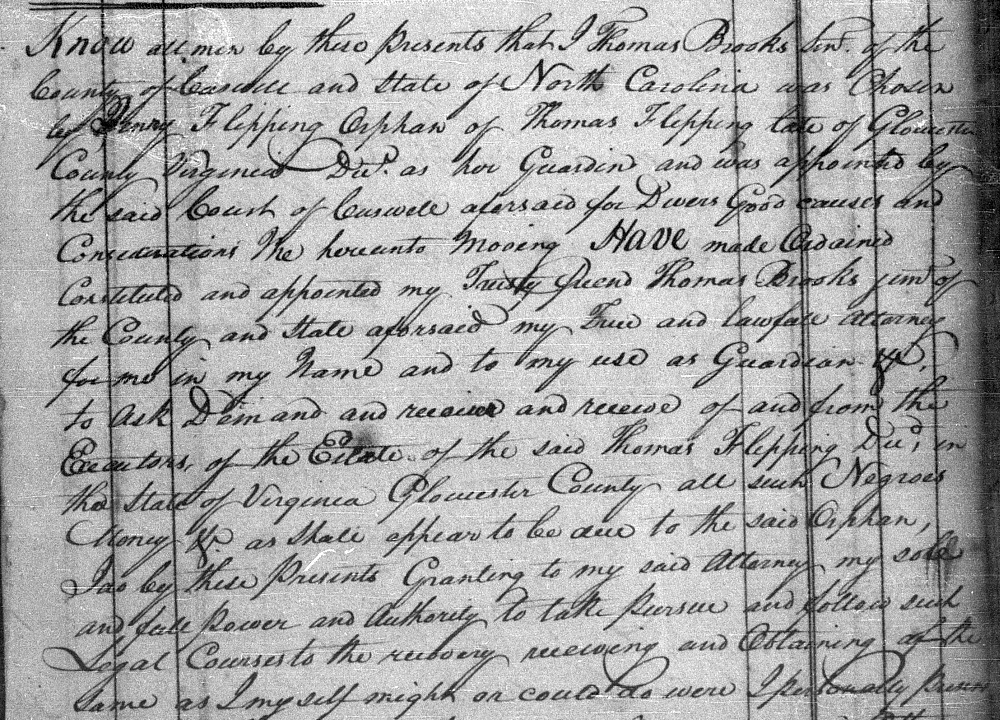 Know all men by these presents that I Thomas Brooks Senr. of the
County of Caswell and State of North Carolina was Chosen
by Henry Flipping Orphan of Thomas Flipping late of Gloucester
County Virginia Decd. as her Guardin and was appointed by
the said Court of Caswell aforsaid for Divers Good causes and
Considerations Me hereunto Moving Have made Ordained
Constituted and appointed my Trusty friend Thomas Brooks junr of
the County and State aforsaid my True and lawfull Attorney
for me in my Name and to my use as Guardian &c.
to Ask Demand and receive and receive of and from the
Executors, of the Estate of the said Thomas Flipping Decd. in
the State of Virginia Gloucester County all such Negroes
Money &c. as Shall appear to be due to the said Orphan,
I do by these Presents Granting to my said Attorney my sole
and full Power and Authority to take Pursue and follow such
Legal Courses to the recovery receiving and Obtaining of the
same as I my self might or could do were I personally Present